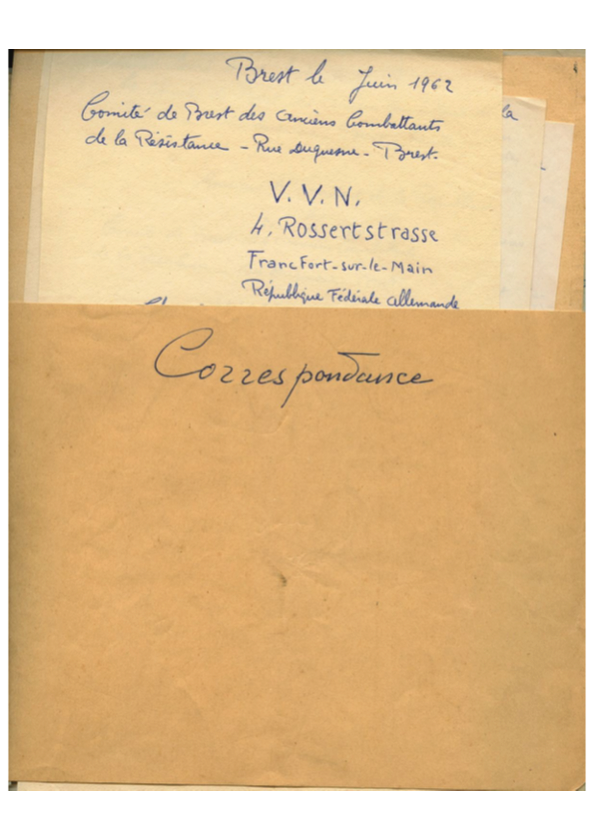 Brest le Juin 1962
la
Comité de Brest des anciens Combattants
de la Résistance - Rue Duquesne - Brest.
V.V.N.
4, Rossertstrasse
Francfort-sur-le-Main
République Fédérale allemande
Correspondance